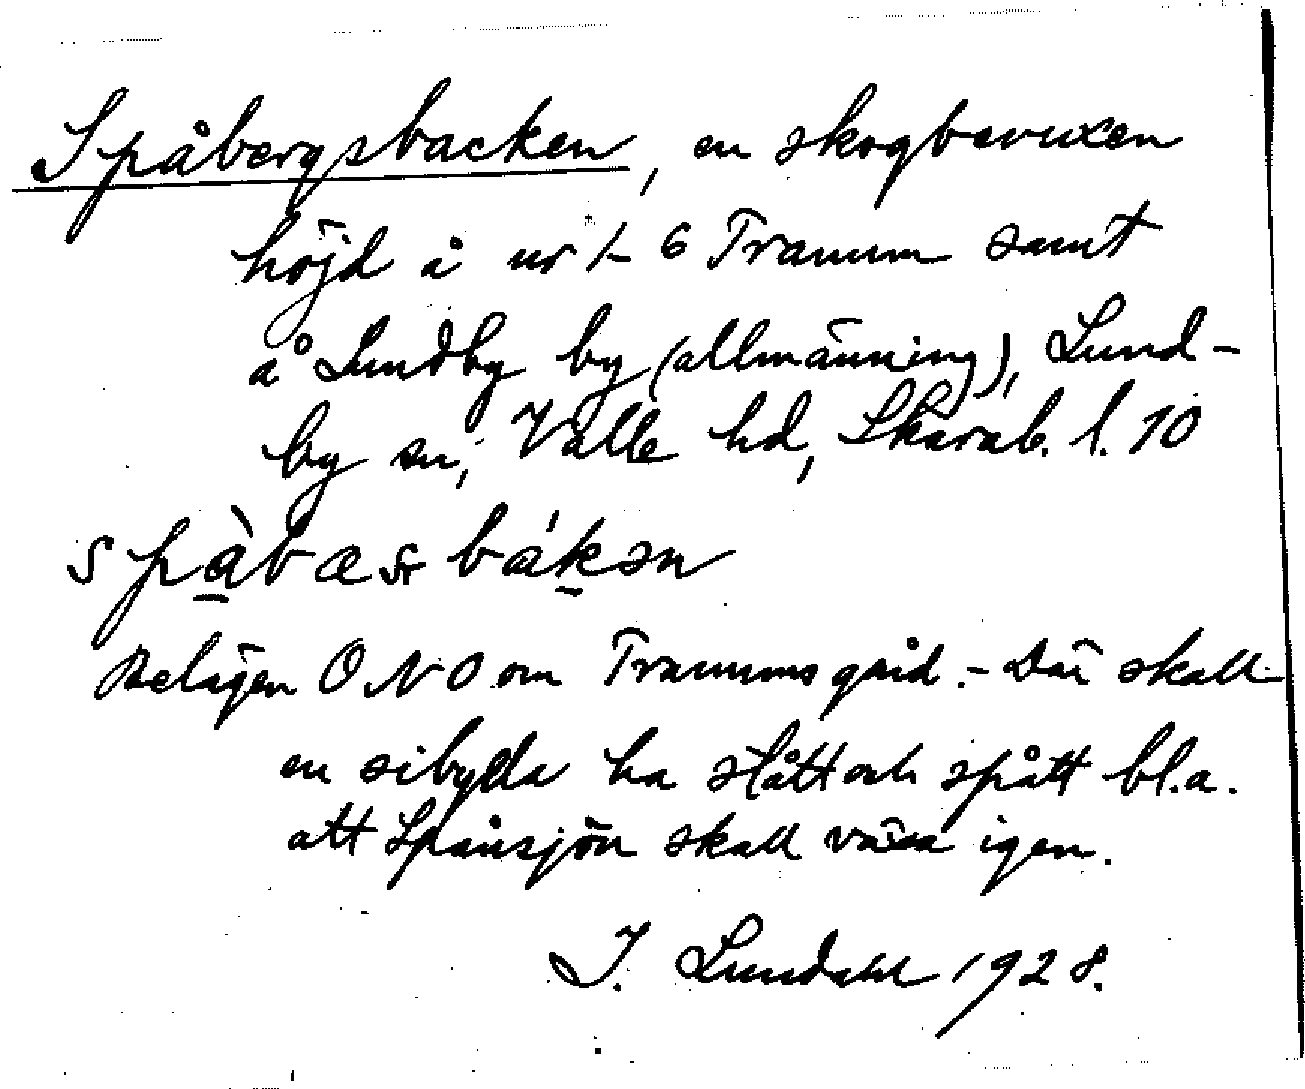 Spåbergsbacken, en skogbevuxen
höjd å nr 1-6 Tranum samt
å Lundby by (allmänning), Lund-
by sn, Valle hd, Skarab. l. 10
spàbæsrbák
Belägen ONO om Tranums gård. - Där skall
en sibylla ha stått och spått bl.a.
att Spånsjön skall växa igen.
I. Lundahl 1928.